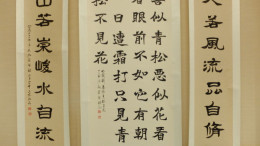 若風流品自脩
善似青松惡似花看
着眼前不如它有朝
一日遭霜打只見青
松不見花
山若崇峻水自流